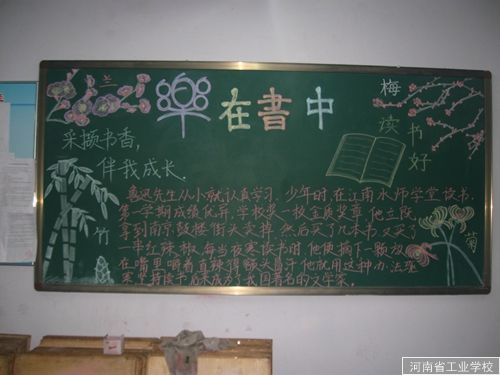 兰
樂在書中
梅
采撷书香，
伴我成长．
读书好
竹
菊
鲁迅先生从小就认真学习．少年时，在江南水师学堂读书，
第一学期成绩优异，学校奖一枚金质奖章，他立既
拿到南京鼓楼街头卖掉，然后买了几本书，又买了
一串红辣椒，每当夜寒读书时，他便摘下一颗放
在嘴里嚼着直辣得额头冒汗他就用这种办法驱
寒坚持读书后来成为我国著名的文学家．
河南省工业学校